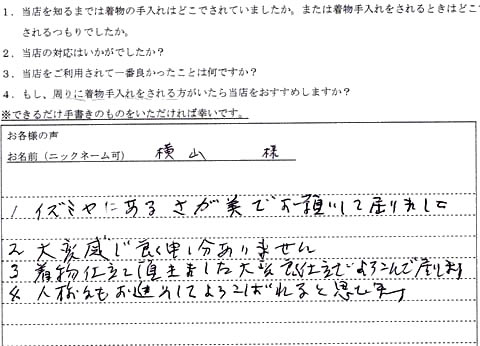 1．当店を知るまでは着物の手入れはどこでされていましたか。または着物手入れをされるときはどこ
されるつもりでしたか。
2．当店の対応はいかがでしたか？
3．当店をご利用されて一番良かったことは何ですか？
4．もし、周りに着物手入れをされる方がいたら当店をおすすめしますか？
※できるだけ手書きのものをいただければ幸いです。
お客様の声
お名前（ニックネーム可） 横山 様
1 イズミヤにあるさが美でお願いして居りました
2 大変感じ良く申し分ありません
3 着物仕立て頂きました大変良い仕立でよろこんで居ります
4 人様にもお進めしてよろこばれると思います